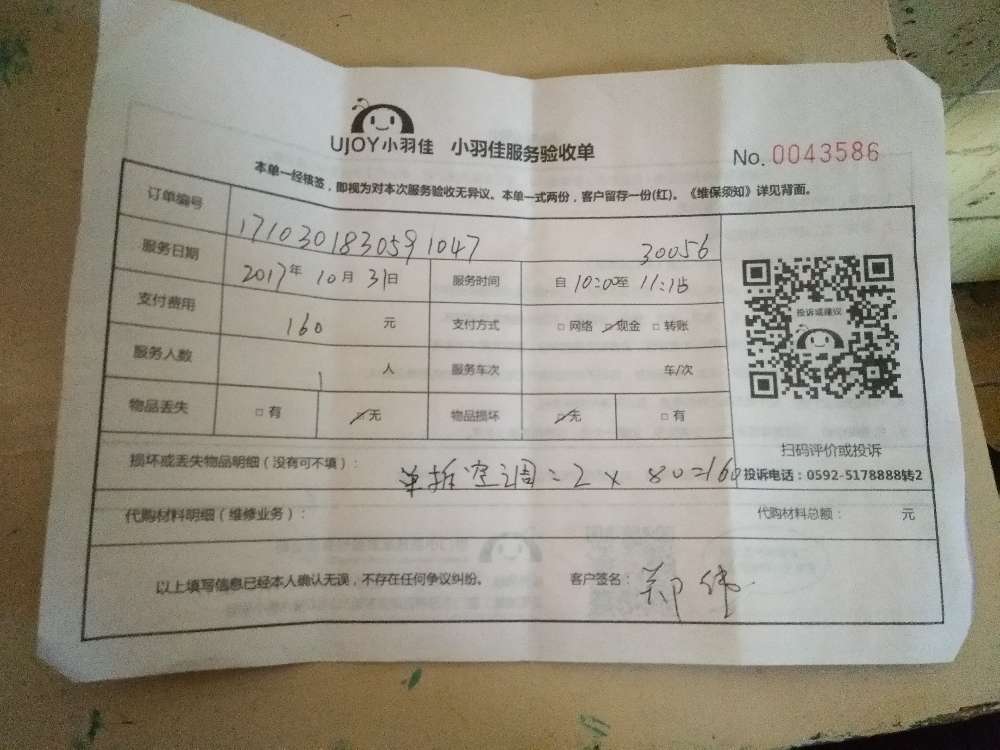 UJOY小羽佳 小羽佳服务验收单
No. 0043586
本单一经核签，即视为对本次服务验收无异议。本单一式两份，客户留存一份(红)。《维保须知》详见背面。
订单编号 171030183059 1047 30056
服务日期 2017年 10月 31日 服务时间 自 10:00至 11:16
支付费用 160 元 支付方式 □ 网络 □ 现金 □ 转账
服务人数 1 人 服务车次 车/次
物品丢失 □ 有 □ 无 物品损坏 □ 无 □ 有
投诉或建议
扫码评价或投诉
投诉电话：0592-5178888转2
损坏或丢失物品明细（没有可不填）： 单拆空调=2×80=160
代购材料明细（维修业务）： 代购材料总额： 元
以上填写信息已经本人确认无误，不存在任何争议纠纷。 客户签名： 郑伟